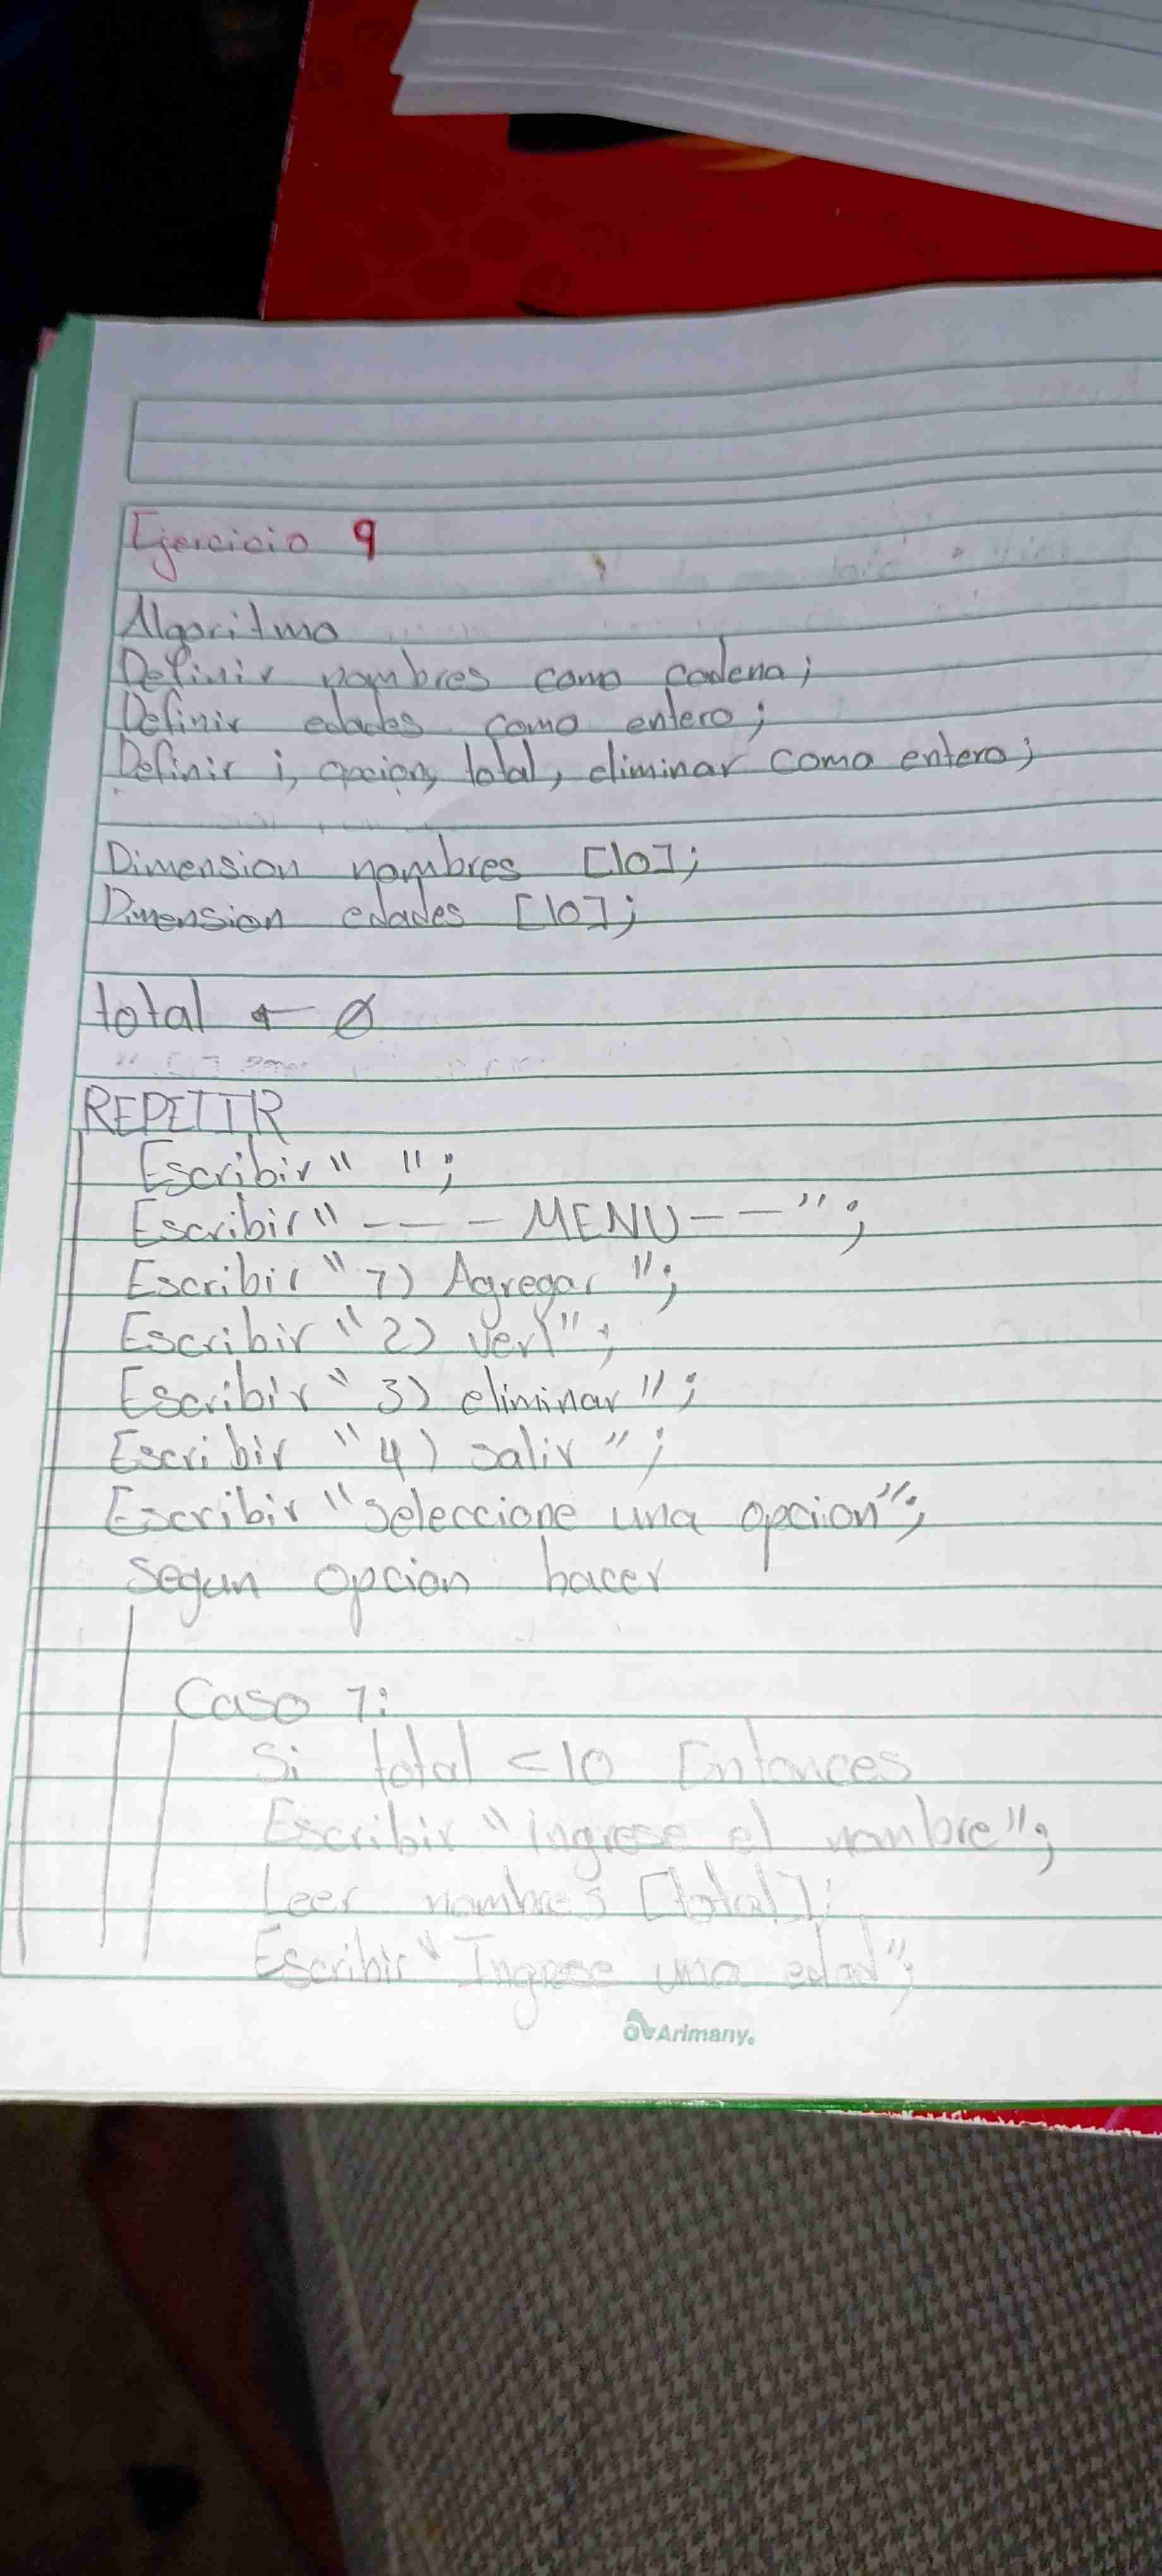 Ejercicio 9
Algoritmo
Definir nombres como cadena;
Definir edades como entero;
Definir i, opcion, total, eliminar como entero;
Dimension nombres [10];
Dimension edades [10];
total ← 0
REPETIR
Escribir " ";
Escribir "--- MENU--";
Escribir "1) Agregar ";
Escribir "2) ver)";
Escribir "3) eliminar";
Escribir "4) salir";
Escribir "seleccione una opcion";
segun opcion hacer
Caso 1:
Si total <10 Entonces
Escribir "ingrese el nombre";
Leer nombres [total];
Escribir "Ingrese una edad";
Arimany.